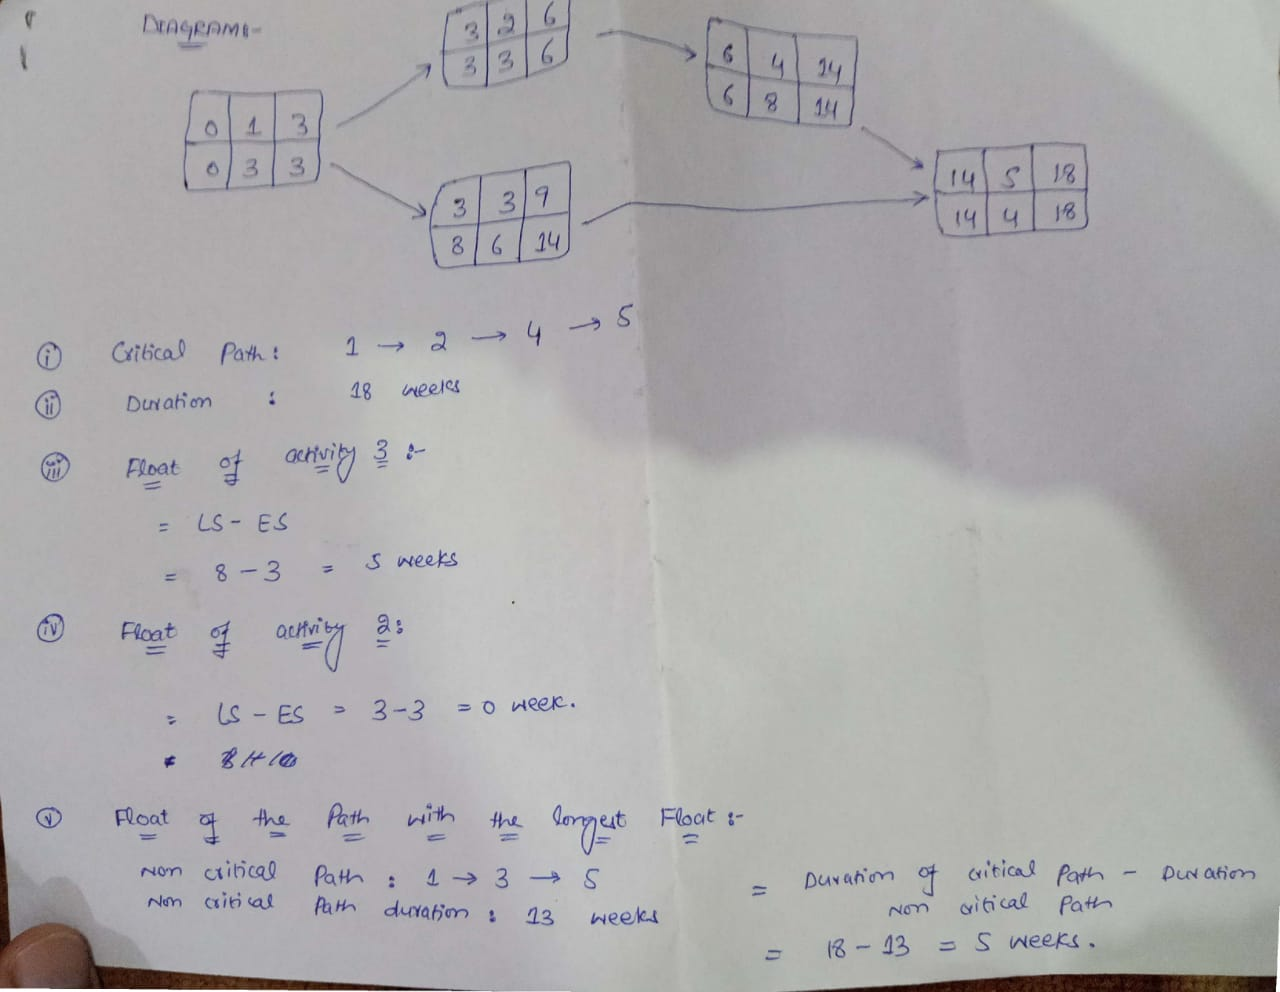 DIAGRAM:-
3 2 6
3 3 6
6 4 14
6 8 14
0 1 3
0 3 3
3 3 9
8 6 14
14 5 18
14 4 18
(i) Critical Path : 1 → 2 → 4 → 5
(ii) Duration : 18 weeks
(iii) Float of activity 3 :-
= LS - ES
= 8 - 3 = 5 weeks
(iv) Float of activity 2 :
= LS - ES = 3-3 = 0 week.
(v) Float of the Path with the longest Float :-
Non critical Path : 1 → 3 → 5
Non critical Path duration : 13 weeks
= Duration of critical Path - Duration
Non critical Path
= 18 - 13 = 5 weeks.